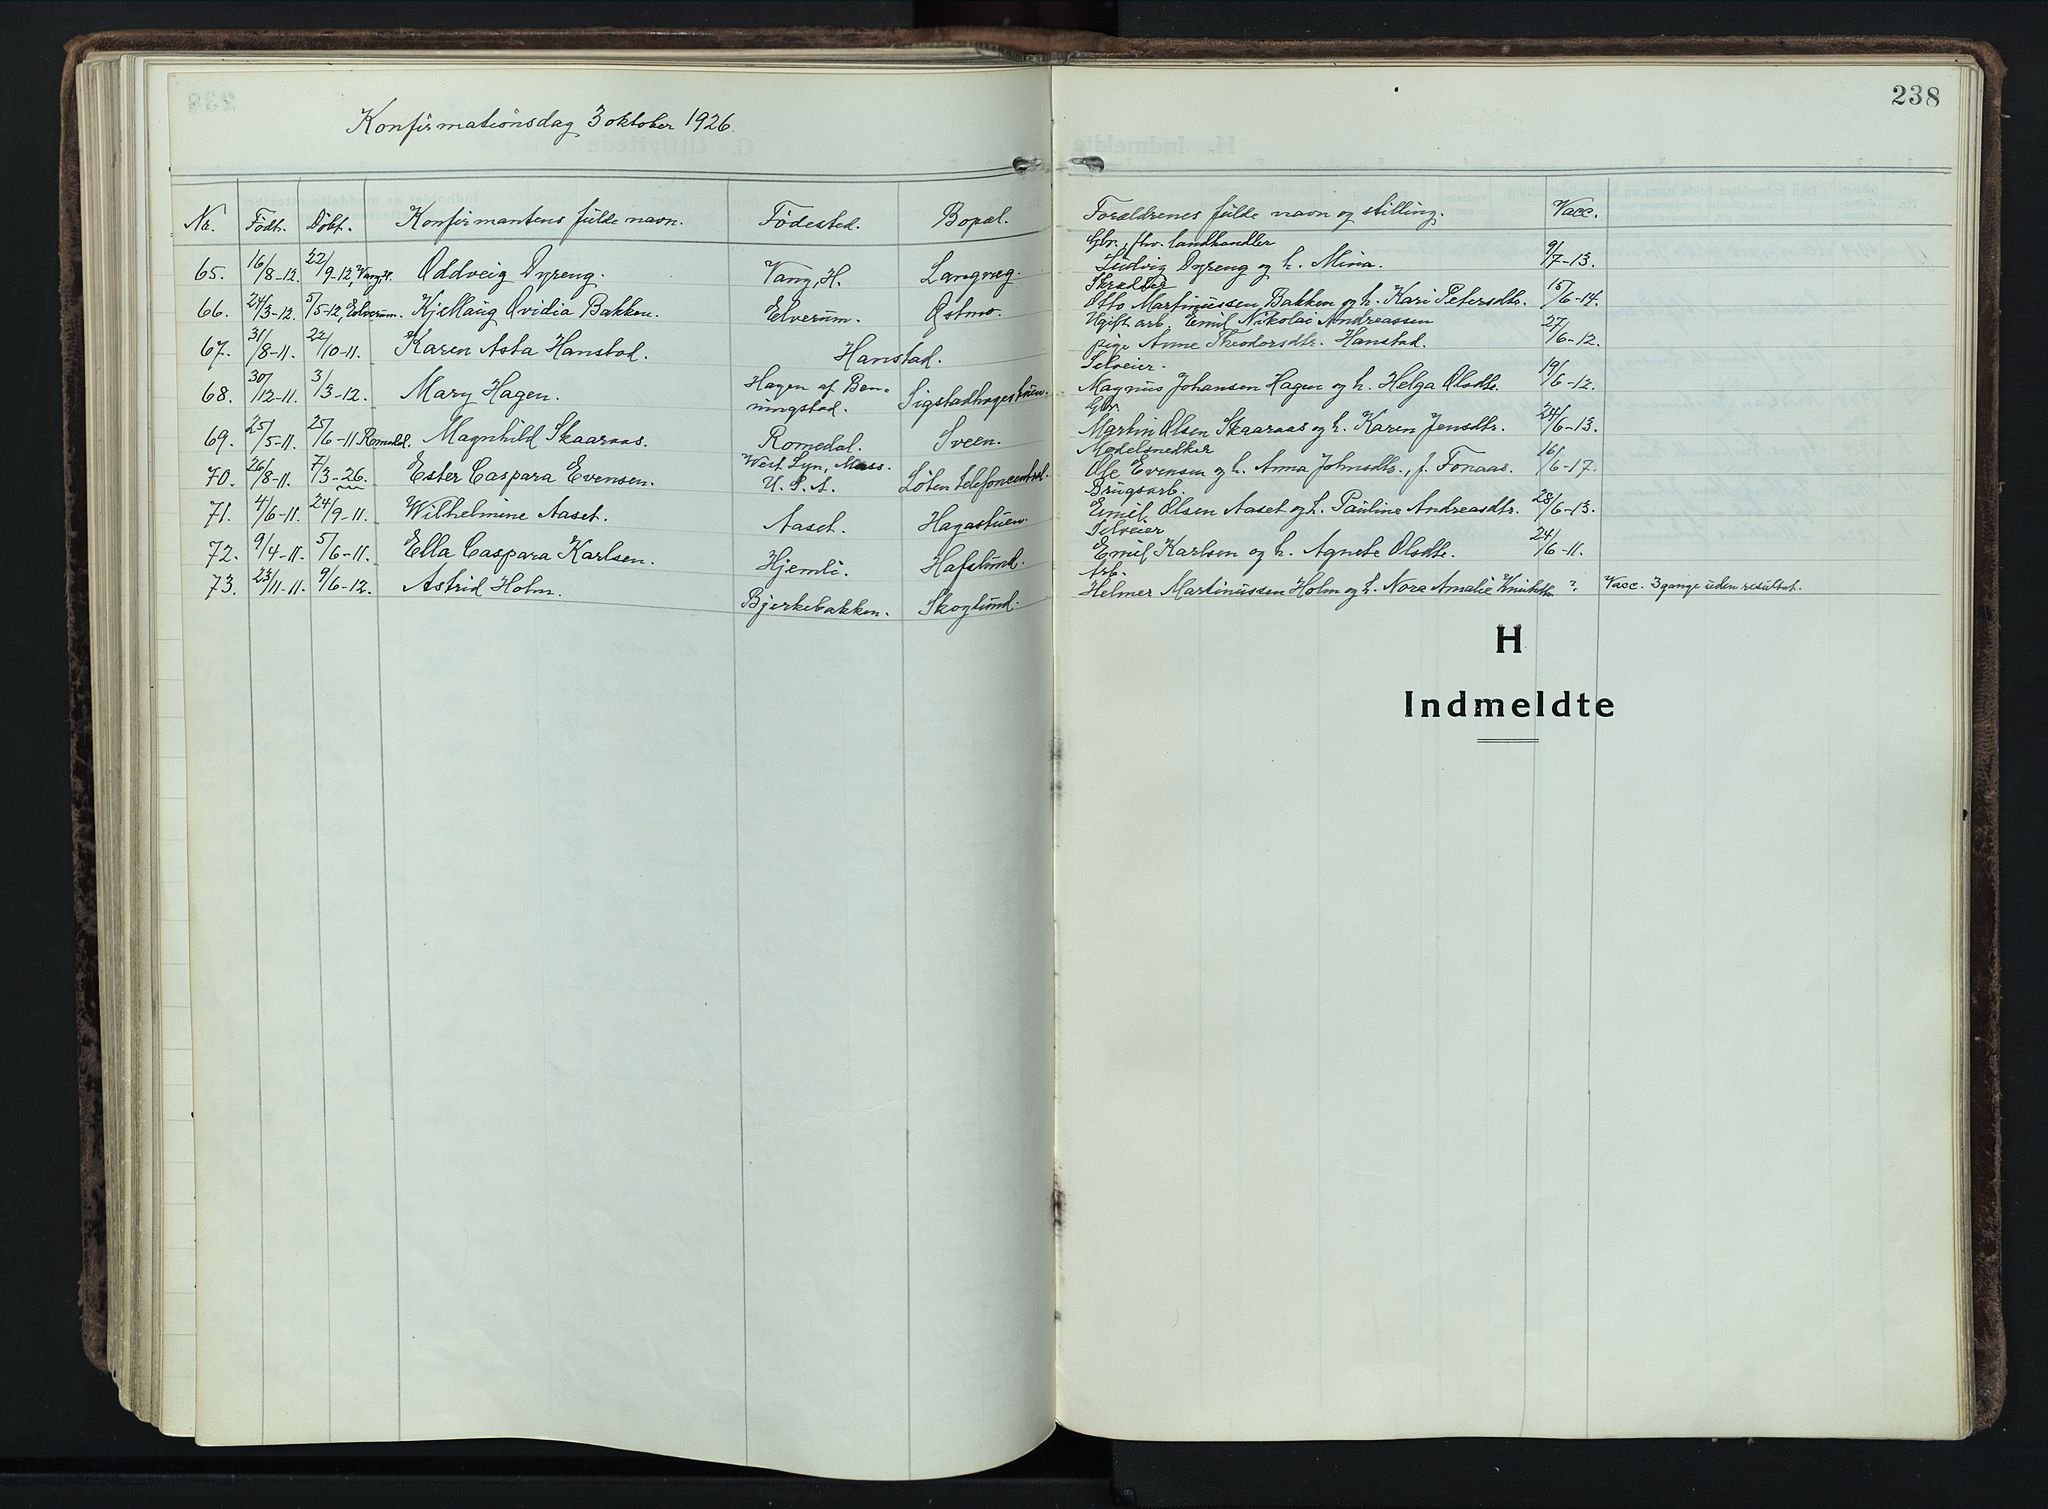 Konfirmationsdag 3 oktober 1926.
238
No. Født. Døbt. Konfirmantens fulde navn. Fødested. Bopæl. Forældrenes fulde navn og stilling. Vacc.
Gbr., fhv. landhandler
65. 16/8-12. 22/9-12, Vang, H. Oddveig Dyreng. Vang, H. Langveg. Ludvig Dyreng og h. Mina. 9/7-13.
Skrædder
66. 24/3-12. 5/5-12, Elverum. Kjellaug Ovidia Bakken. Elverum. Østmo. Otto Martinussen Bakken og h. Kari Petersdtr. 15/6-14.
Ugift arb. Emil Nikolai Andreassen
67. 31/8-11. 22/10-11. Karen Asta Hanstad. Hanstad. pige Anne Theodorsdtr. Hanstad. 27/6-12.
Selveier.
68. 30/12-11. 3/3-12. Mary Hagen. Hagen af Ben-
ningstad. Sigstadhagestuen. Magnus Johansen Hagen og h. Helga Olsdtr. 19/6-12.
Gbr.
69. 25/5-11. 25/6-11 Romedal. Magnhild Skaaraas. Romedal. Sveen. Martin Olsen Skaaraas og h. Karen Jensdtr. 24/6-13.
Modelsnedker
70. 26/8-11. 7/3-26. Ester Caspara Evensen. West Lyn, Mass.
U. S. A. Løten telefoncentral. Ole Evensen og h. Anna Johnsdtr., f. Fonaas. 16/6-17.
Brugsarb.
71. 4/6-11. 24/9-11. Wilhelmine Aaset. Aaset. Hagastuen. Emil Olsen Aaset og h. Pauline Andreasdtr. 28/6-13.
Selveier
72. 9/4-11. 5/6-11. Ella Caspara Karlsen. Hjemli. Hafslund. Emil Karlsen og h. Agnete Olsdtr. 24/6-11.
Arb.
73. 23/11-11. 9/6-12. Astrid Holm. Bjerkebakken. Skoglund. Helmer Martinussen Holm og h. Nora Amalie Knutsdtr ? Vacc. 3 gange uden resultat.
H
Indmeldte